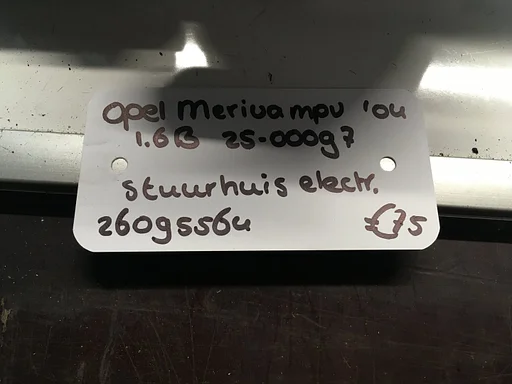 Opel Meriva mpv '04
1.6B 25-00097
stuurhuis electr.
26095564 €75